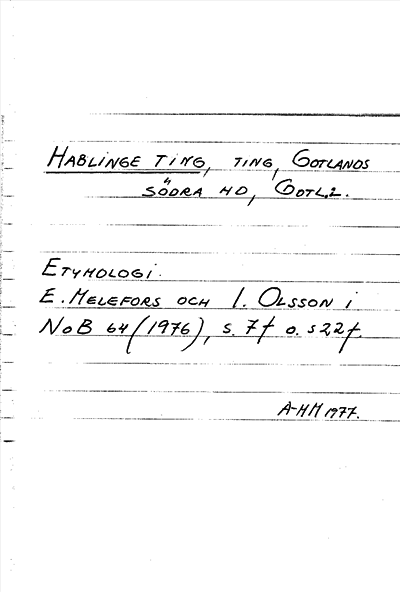 HABLINGE TING, TING, GOTLANDS
SÖDRA HD, GOTL.L.
ETYMOLOGI.
E. MELEFORS OCH I. OLSSON i
NoB 64 (1976), s. 7f o. s 22f.
A-HM 1977.